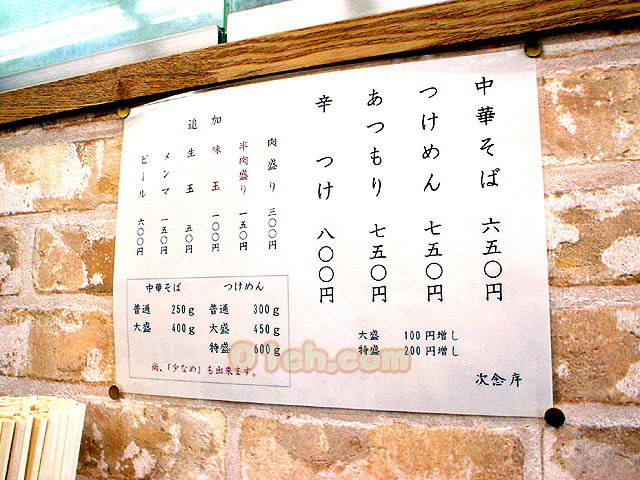 中華そば 六五〇円
つけめん 七五〇円
あつもり 七五〇円
辛つけ 八〇〇円
大盛 100円増し
特盛 200円増し
追加
肉盛り 三〇〇円
半肉盛り 一五〇円
味玉 一〇〇円
生玉 五〇円
メンマ 一五〇円
ビール 六〇〇円
中華そば つけめん
普通 250g 普通 300g
大盛 400g 大盛 450g
特盛 600g
尚、「少なめ」も出来ます。
次念序
01ch.com